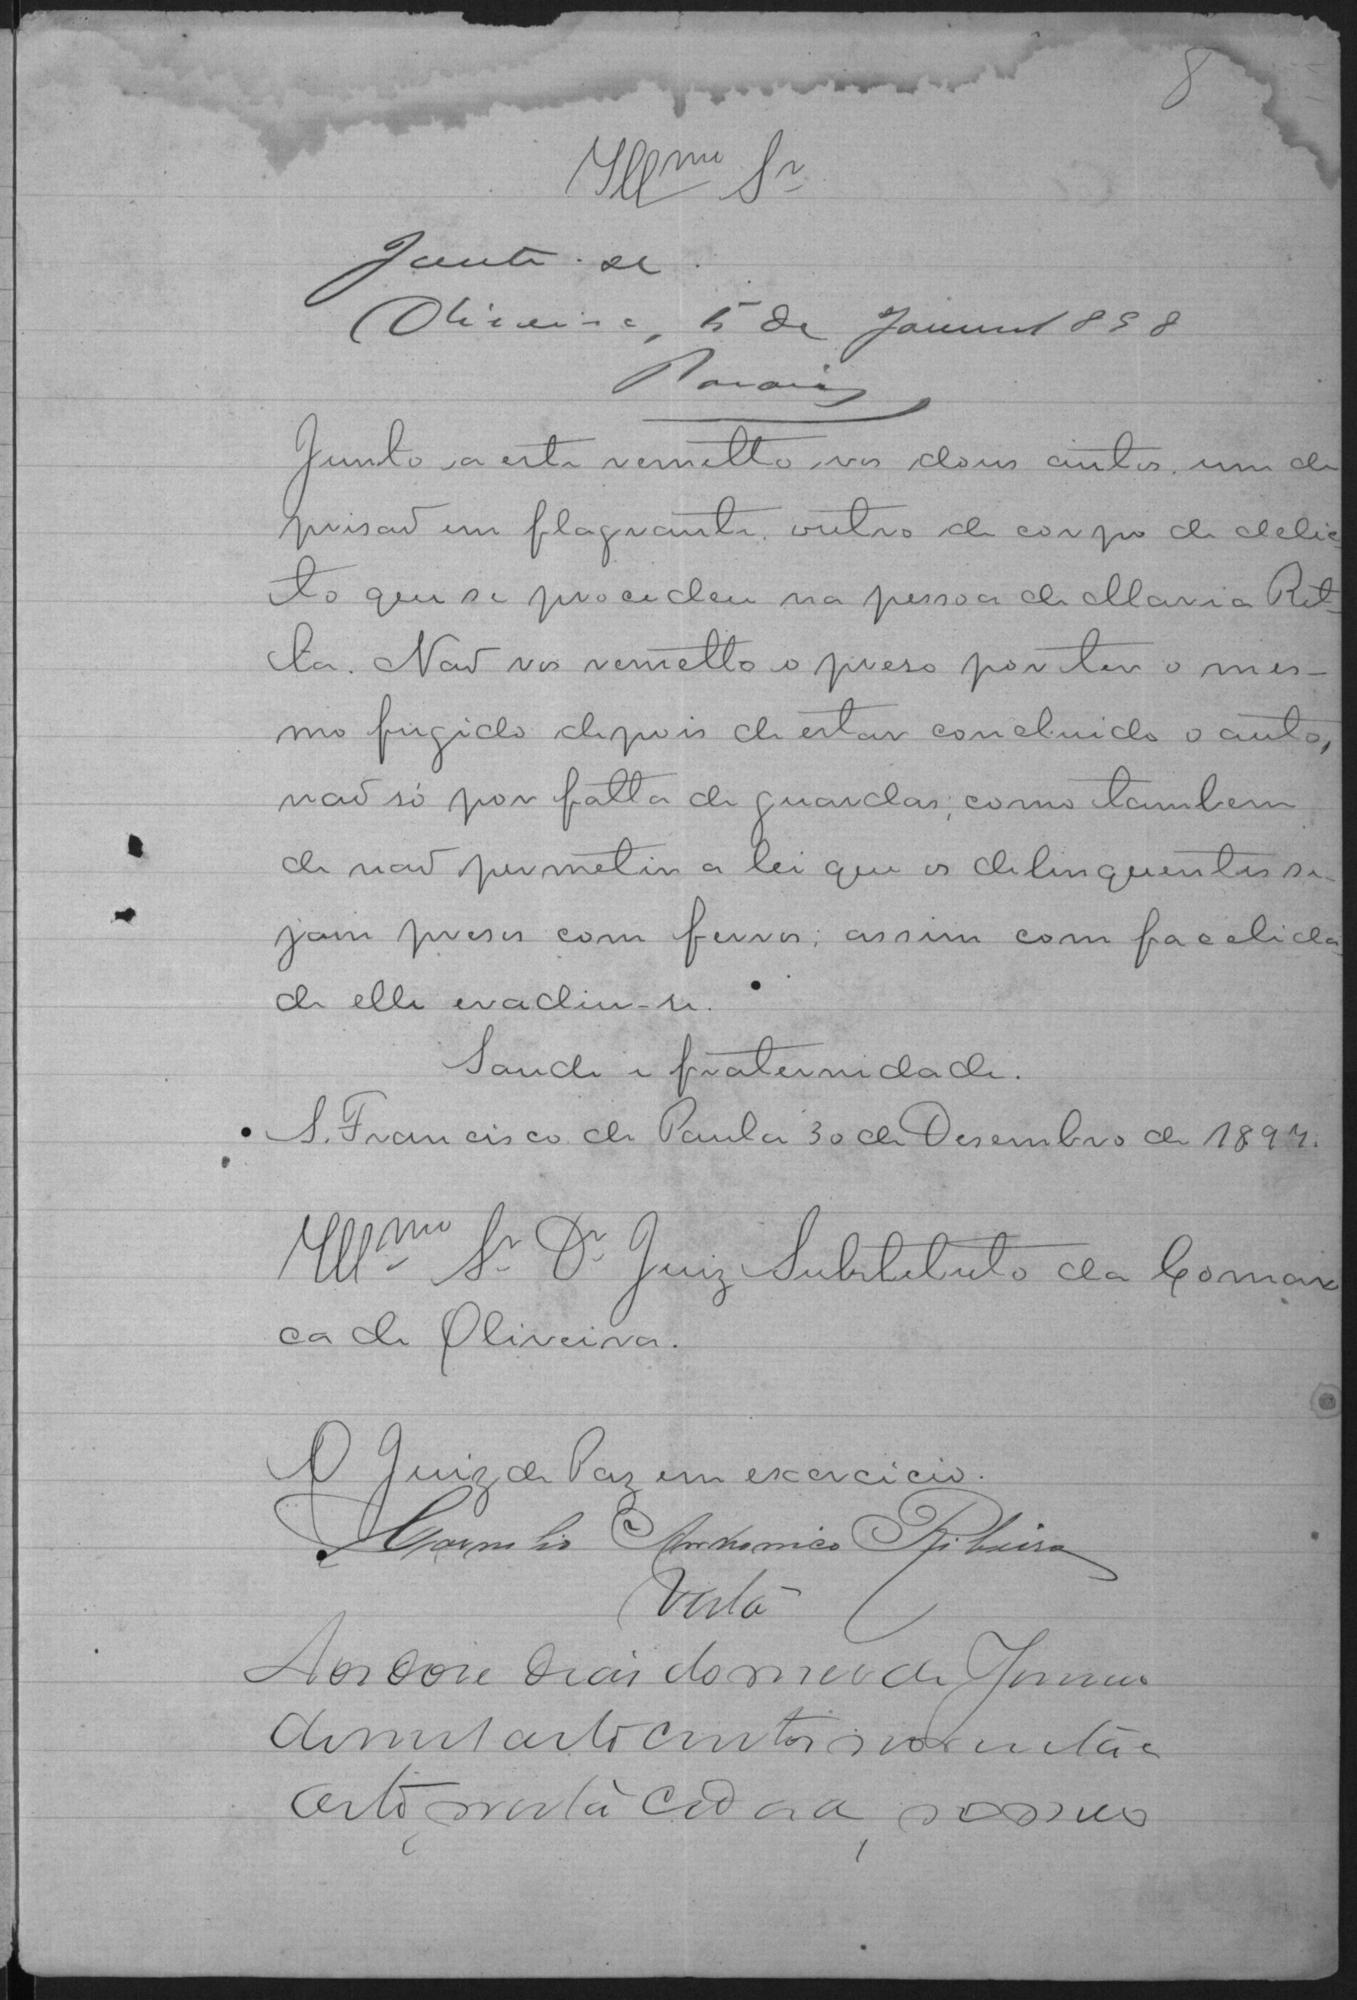 8
Illmo Sr
Junte-se.
Oliveira, 5 de Janeiro 1898
Junto a este remetto vos dous autos, um de
prisaõ em flagrante, outro de corpo de delic-
to que se procedeu na pessoa de Maria Rit-
ta. Naõ vos remetto o preso por ter o mes-
mo fugido depois de estar concluido o auto,
naõ só por falta de guardas; como tambem
de naõ permetir a lei que os delinquentes se-
jam presos com ferros; assim com facelida
de elle evadiu-se.
Saude e fraternidade.
S. Francisco de Paula 30 de Desembro de 1897.
Illmo Sr Dr Juiz Substituto da Comar
ca de Oliveira.
O Juiz de Paz em exercicio.
Antonico Ribeiro
Aos doze dias do mes de Janeiro
de mil oito centos noventa e
oito, nesta Cidade,